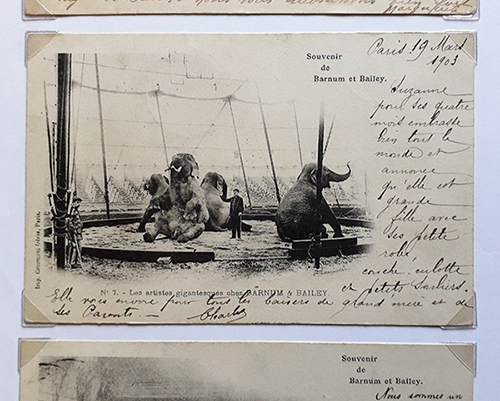 Souvenir
de
Barnum et Bailey.
Paris 19 Mars
1903
Suzanne
pour ses quatre
mois embrasse
bien tout le
monde et
annonce
qu'elle est
grande
fille avec
ses petite
robe,
couche, culotte
et petits souliers.
Imp. Frères, Paris.
No 7. - Les artistes gigantesques chez BARNUM & BAILEY
Elle vous envoie pour tous les baisers de grand mère et de
ses Parents — Charles
Souvenir
de
Barnum et Bailey.
Nous sommes un